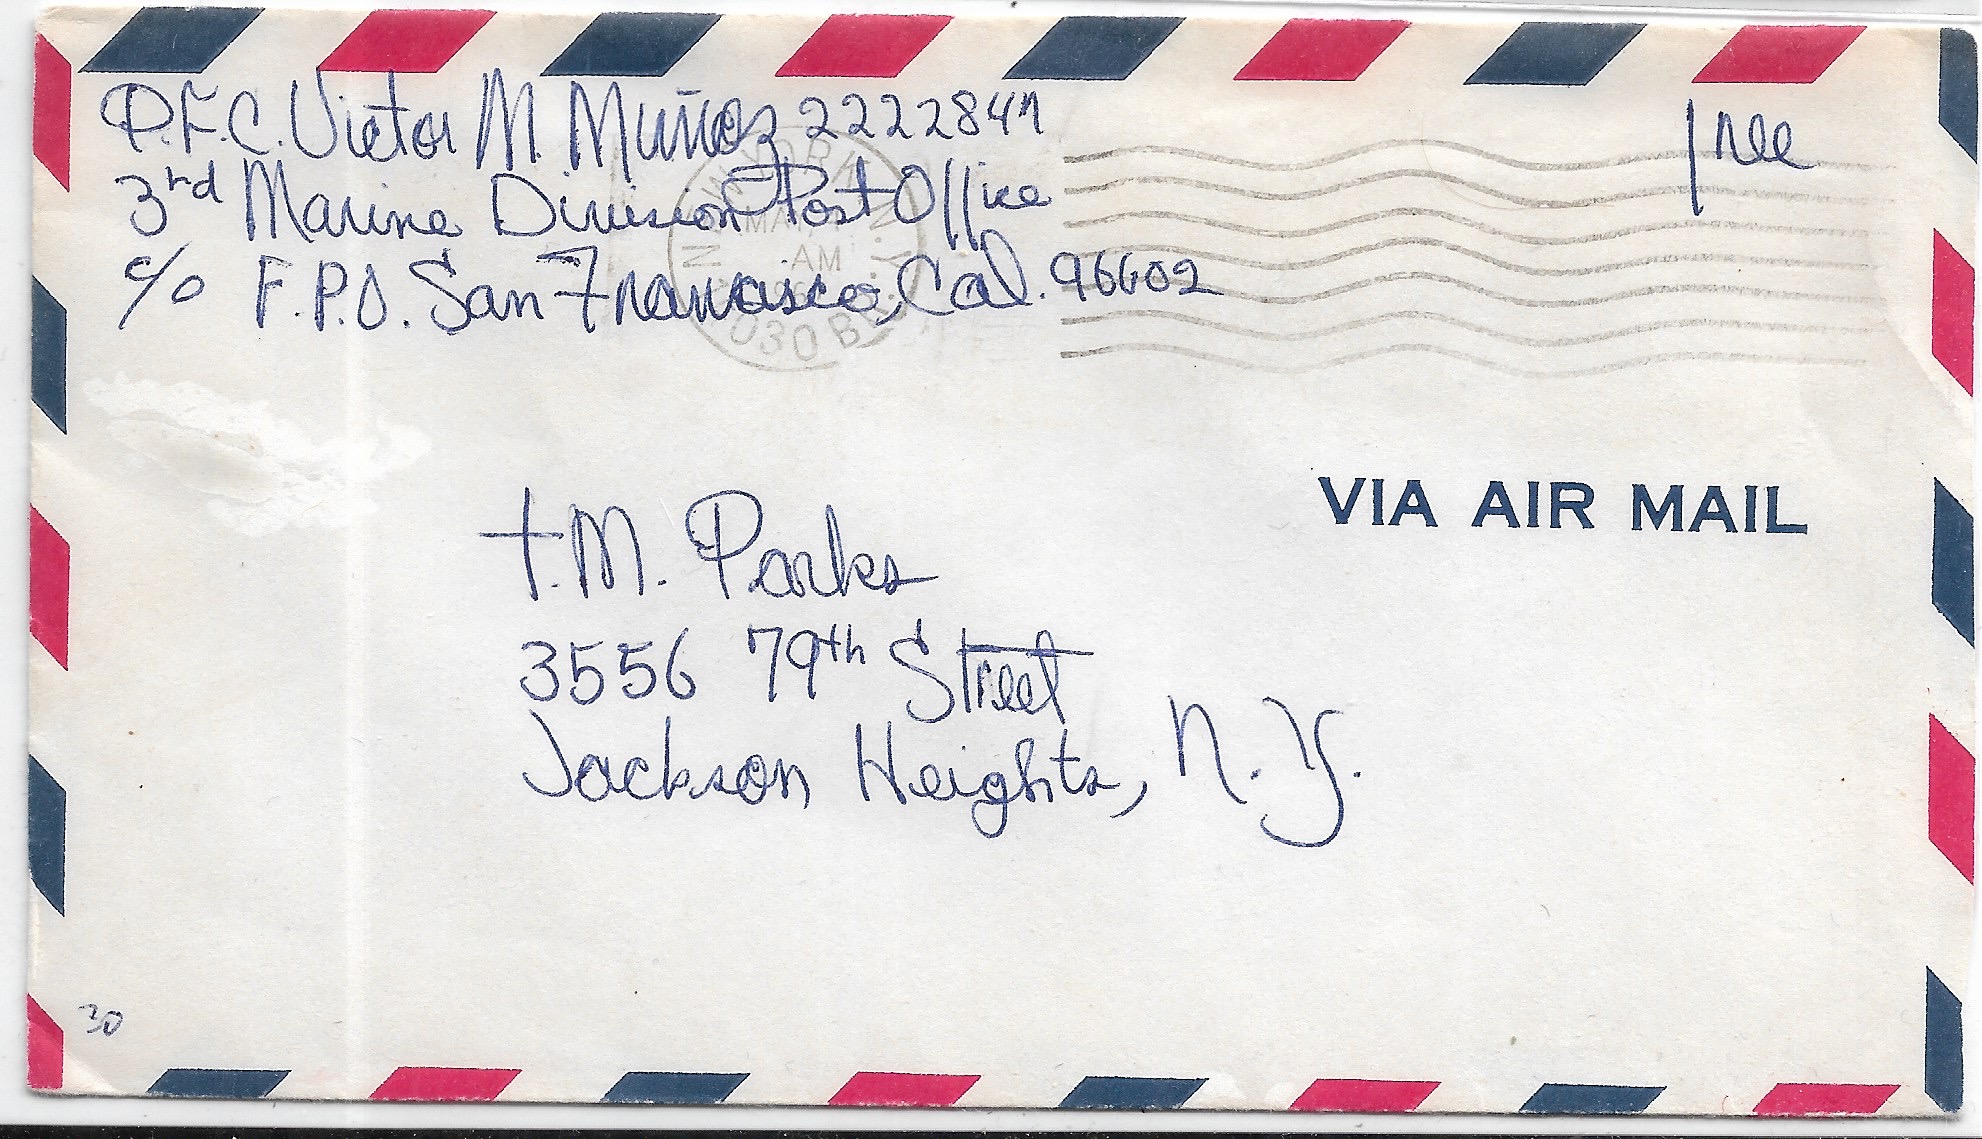 P.F.C. Victor M. Muñoz 2222847
Free
3rd Marine Division Post Office
c/o F.P.O. San Francisco, Cal. 96602
AM
VIA AIR MAIL
T.M. Parks
3556 79th Street
Jackson Heights, N.Y.
30